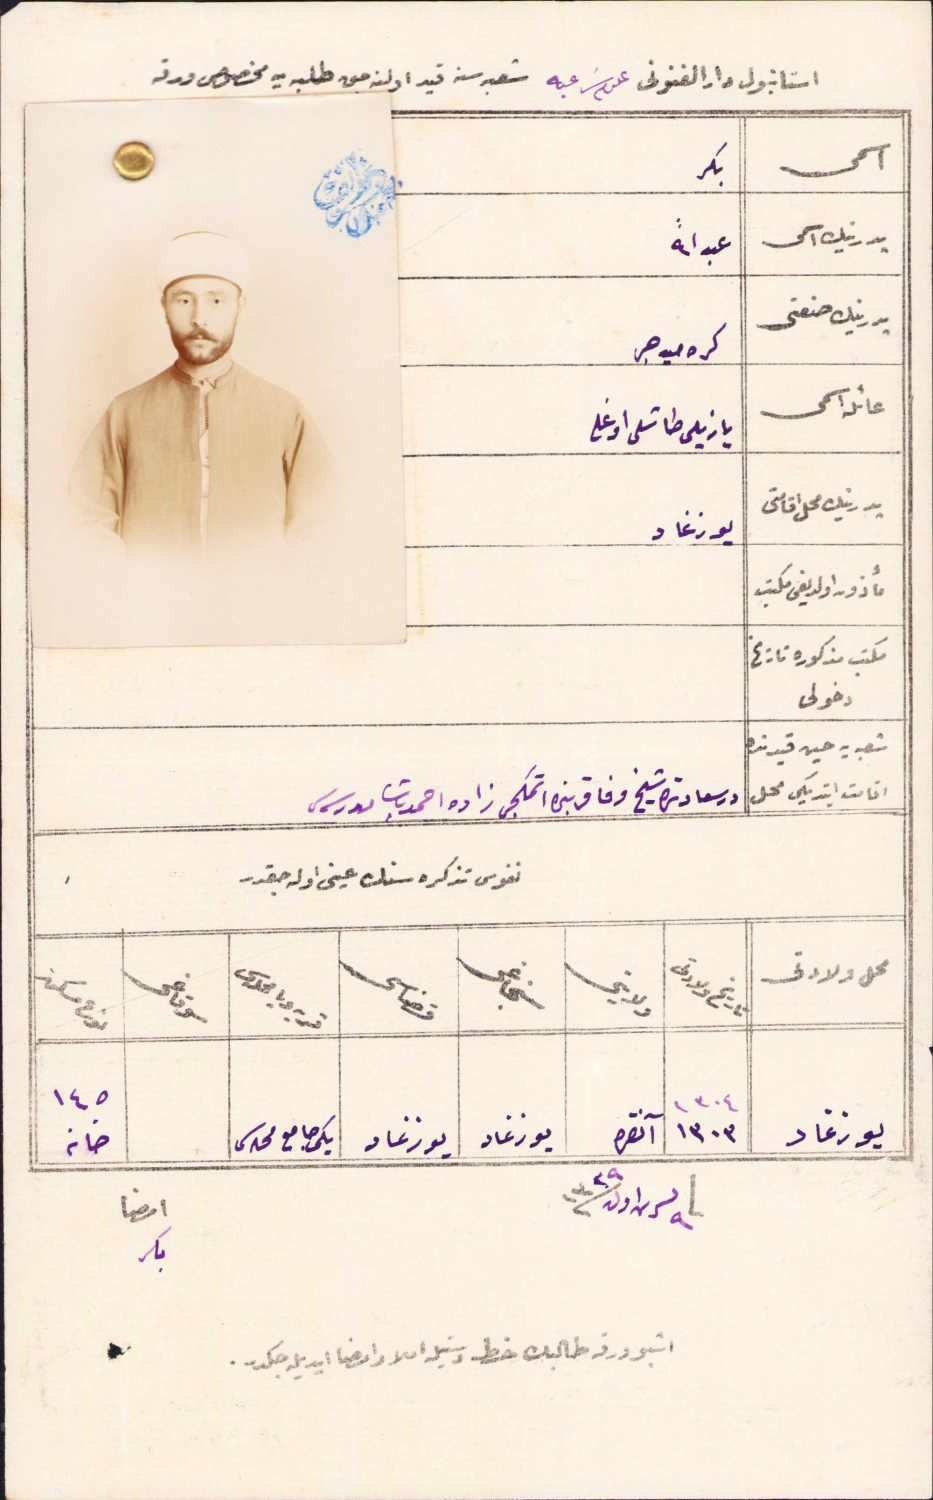 استانبول دار الفنونی علوم شرعیه شعبه سنه قید اولنه جق طلبه یه مخصوص ورقه
اسمی
بكر
پدرینك اسمی
عبد الله
پدرینك صنعتی
عائله اسمی
یازیلی طاشلی اوغلی
پدرینك محل اقامتی
یوزغاد
مأذون اولدیغی مكتب
مكتب مذكوره تاریخ
دخولی
شعبه یه حین قیدنده
اقامت ایتدیكی محل
درسعادتده شیخ وفا قربنده اتمكجی زاده احمد پاشا مدرسه سی
نفوس تذكره سنك عینی اوله جقدر
محل ولادتی
تاریخ ولادتی
ولایتی
سنجاغی
قضاسی
قریه ویا محله سی
سوقاغی
نومرو مسكن
یوزغاد
١٣٠٤
١٣٠٣
آنقره
یوزغاد
یوزغاد
یكی جامع محله سی
١٤٥
خانه
امضا
بكر
اشبو ورقه طالبك خط دستیله املا و امضا ایدیله جكدر.